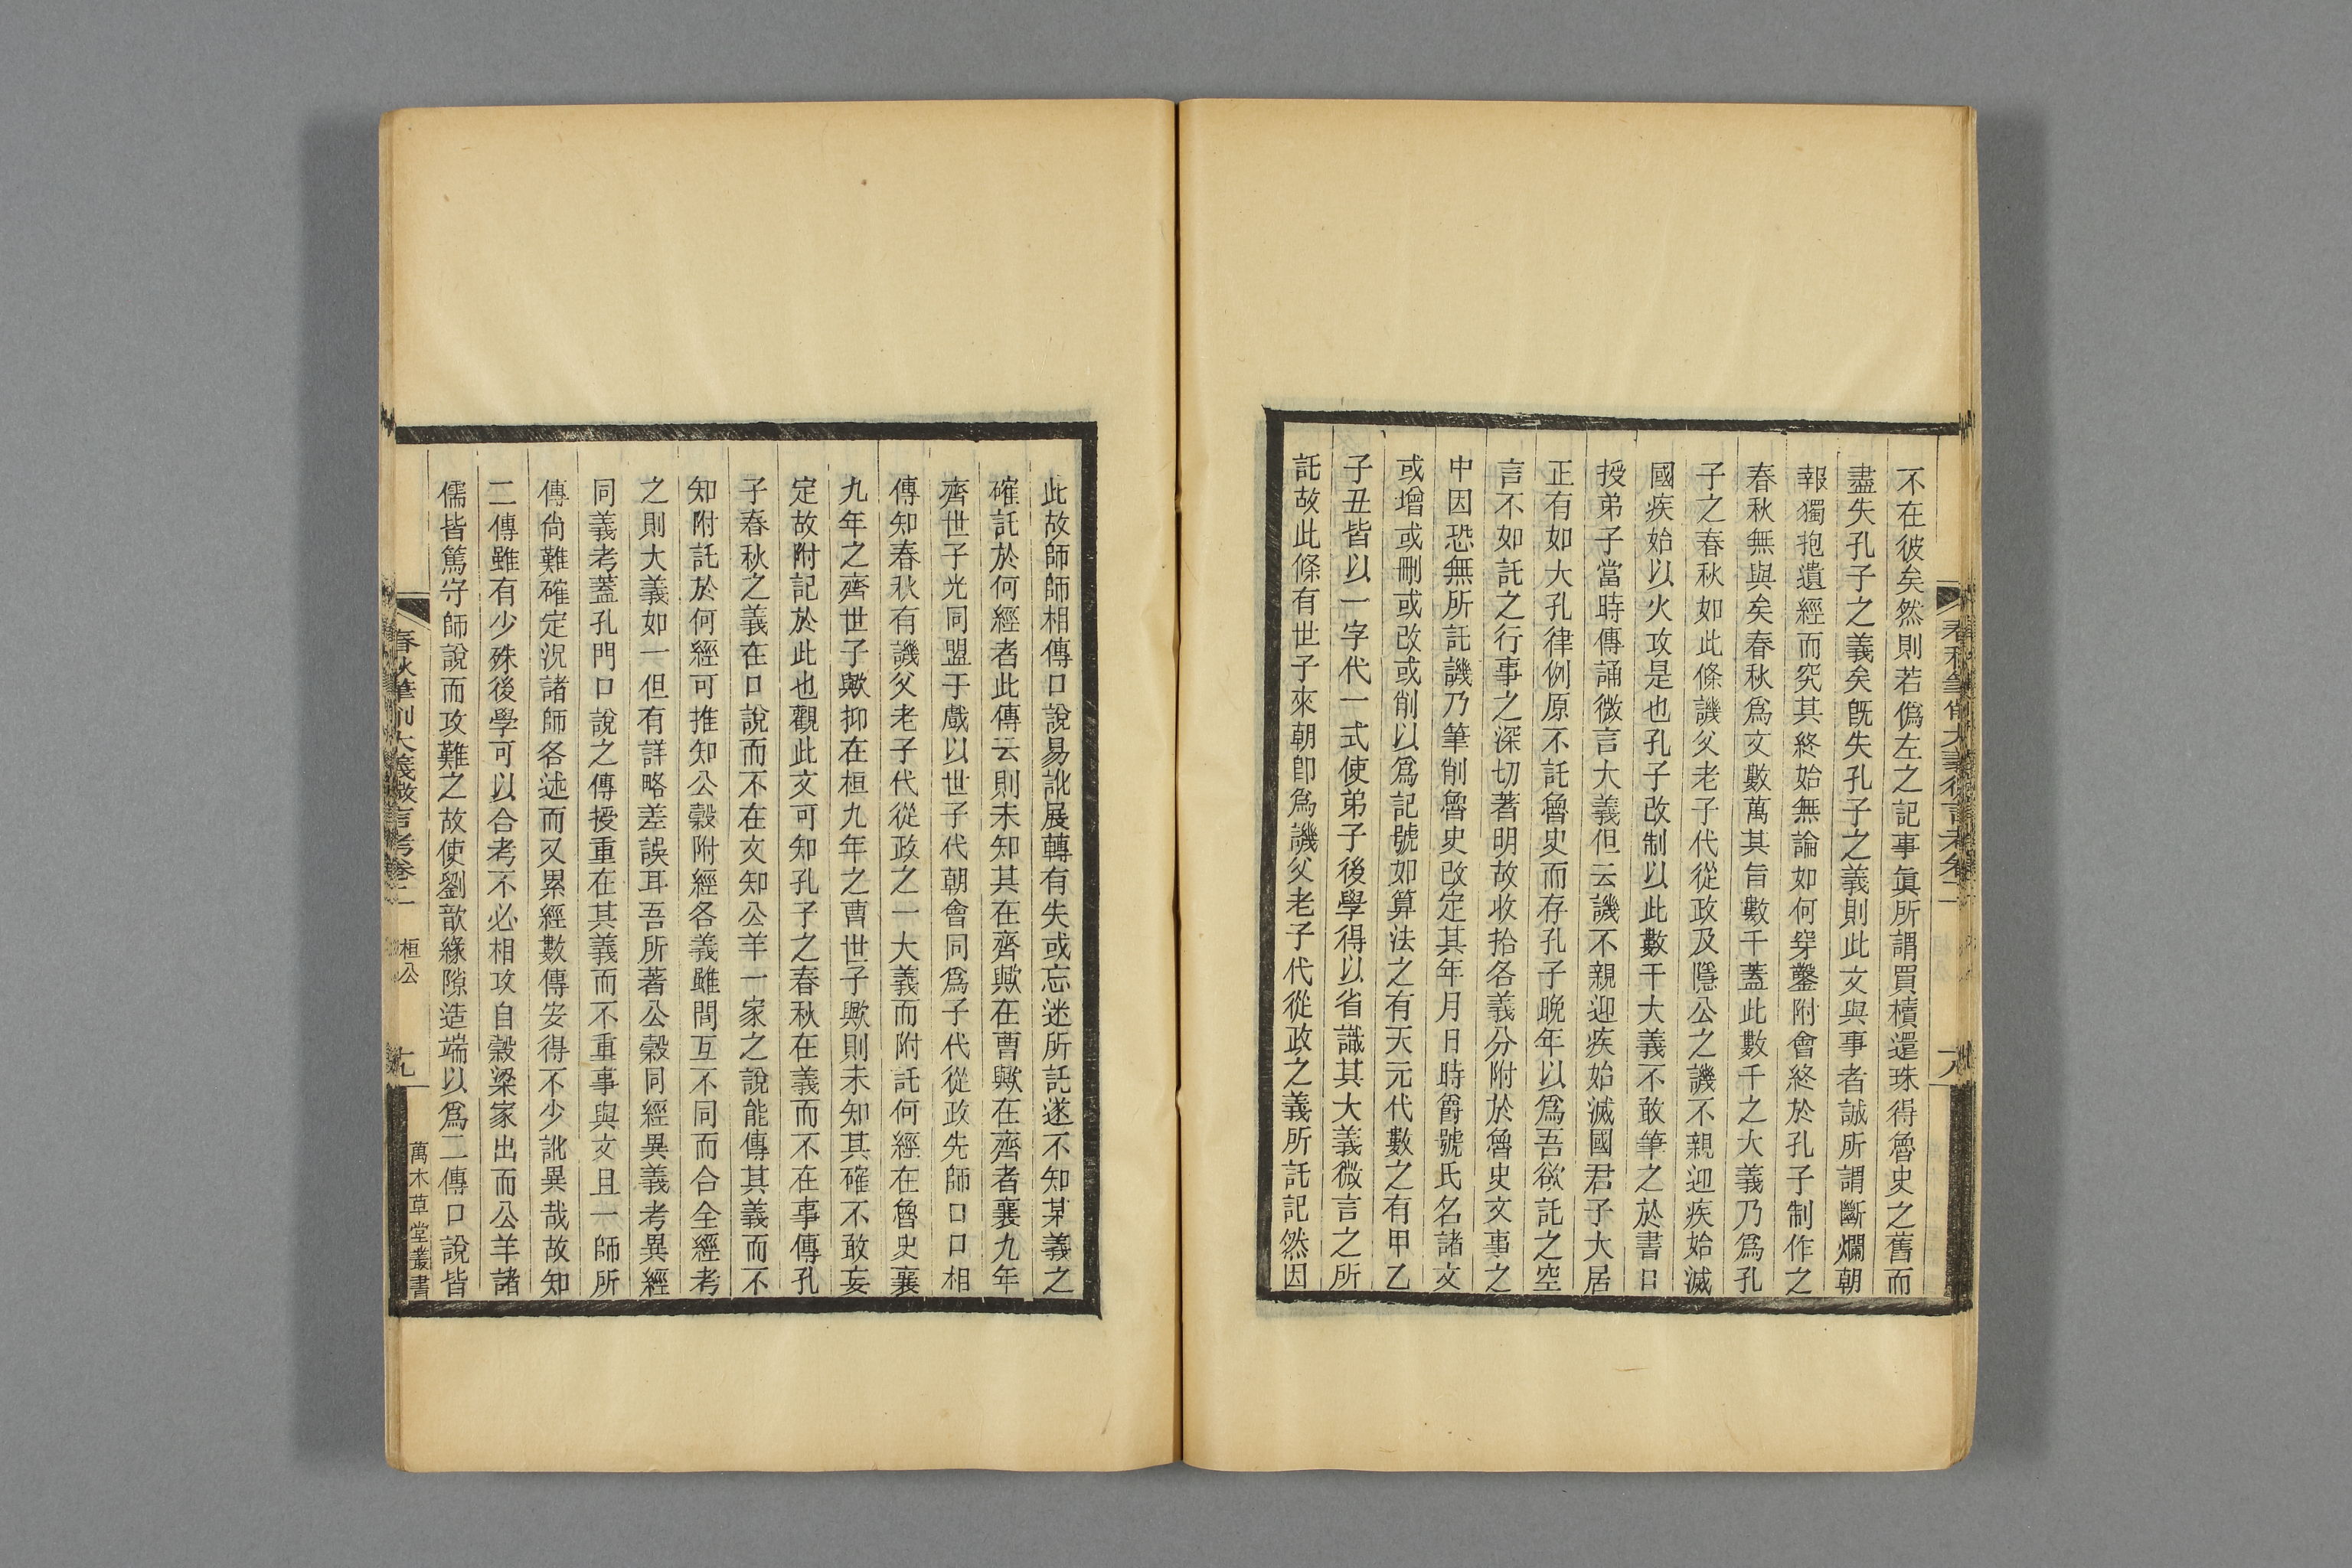 不在彼矣然則若僞左之記事眞所謂買櫝還珠得魯史之舊而
盡失孔子之義矣旣失孔子之義則此文與事者誠所謂斷爛朝
報獨抱遺經而究其終始無論如何穿鑿附會終於孔子制作之
春秋無與矣春秋爲文數萬其旨數千蓋此數千之大義乃爲孔
子之春秋如此條譏父老子代從政及隱公之譏不親迎疾始滅
國疾始以火攻是也孔子改制以此數千大義不敢筆之於書口
授弟子當時傳誦微言大義但云譏不親迎疾始滅國君子大居
正有如大孔律例原不託魯史而存孔子晚年以爲吾欲託之空
言不如託之行事之深切著明故收拾各義分附於魯史文事之
中因恐無所託譏乃筆削魯史改定其年月日時爵號氏名諸文
或增或刪或改或削以爲記號如算法之有天元代數之有甲乙
子丑皆以一字代一式使弟子後學得以省識其大義微言之所
託故此條有世子來朝卽爲譏父老子代從政之義所託記然因
春秋筆削大義微言考卷二
此故師師相傳口說易訛展轉有失或忘迷所託遂不知某義之
確託於何經者此傳云則未知其在齊歟在曹歟在齊者襄九年
齊世子光同盟于戲以世子代朝會同爲子代從政先師口口相
傳知春秋有譏父老子代從政之一大義而附託何經在魯史襄
九年之齊世子歟抑在桓九年之曹世子歟則未知其確不敢妄
定故附記於此也觀此文可知孔子之春秋在義而不在事傳孔
子春秋之義在口說而不在文知公羊一家之說能傳其義而不
知附託於何經可推知公穀附經各義雖間互不同而合全經考
之則大義如一但有詳略差誤耳吾所著公穀同經異義考異經
同義考蓋孔門口說之傳授重在其義而不重事與文且一師所
傳尙難確定況諸師各述而又累經數傳安得不少訛異哉故知
二傳雖有少殊後學可以合考不必相攻自穀梁家出而公羊諸
儒皆篤守師說而攻難之故使劉歆緣隙造端以爲二傳口說皆
春秋筆削大義微言考卷二 桓公 九
萬木草堂叢書